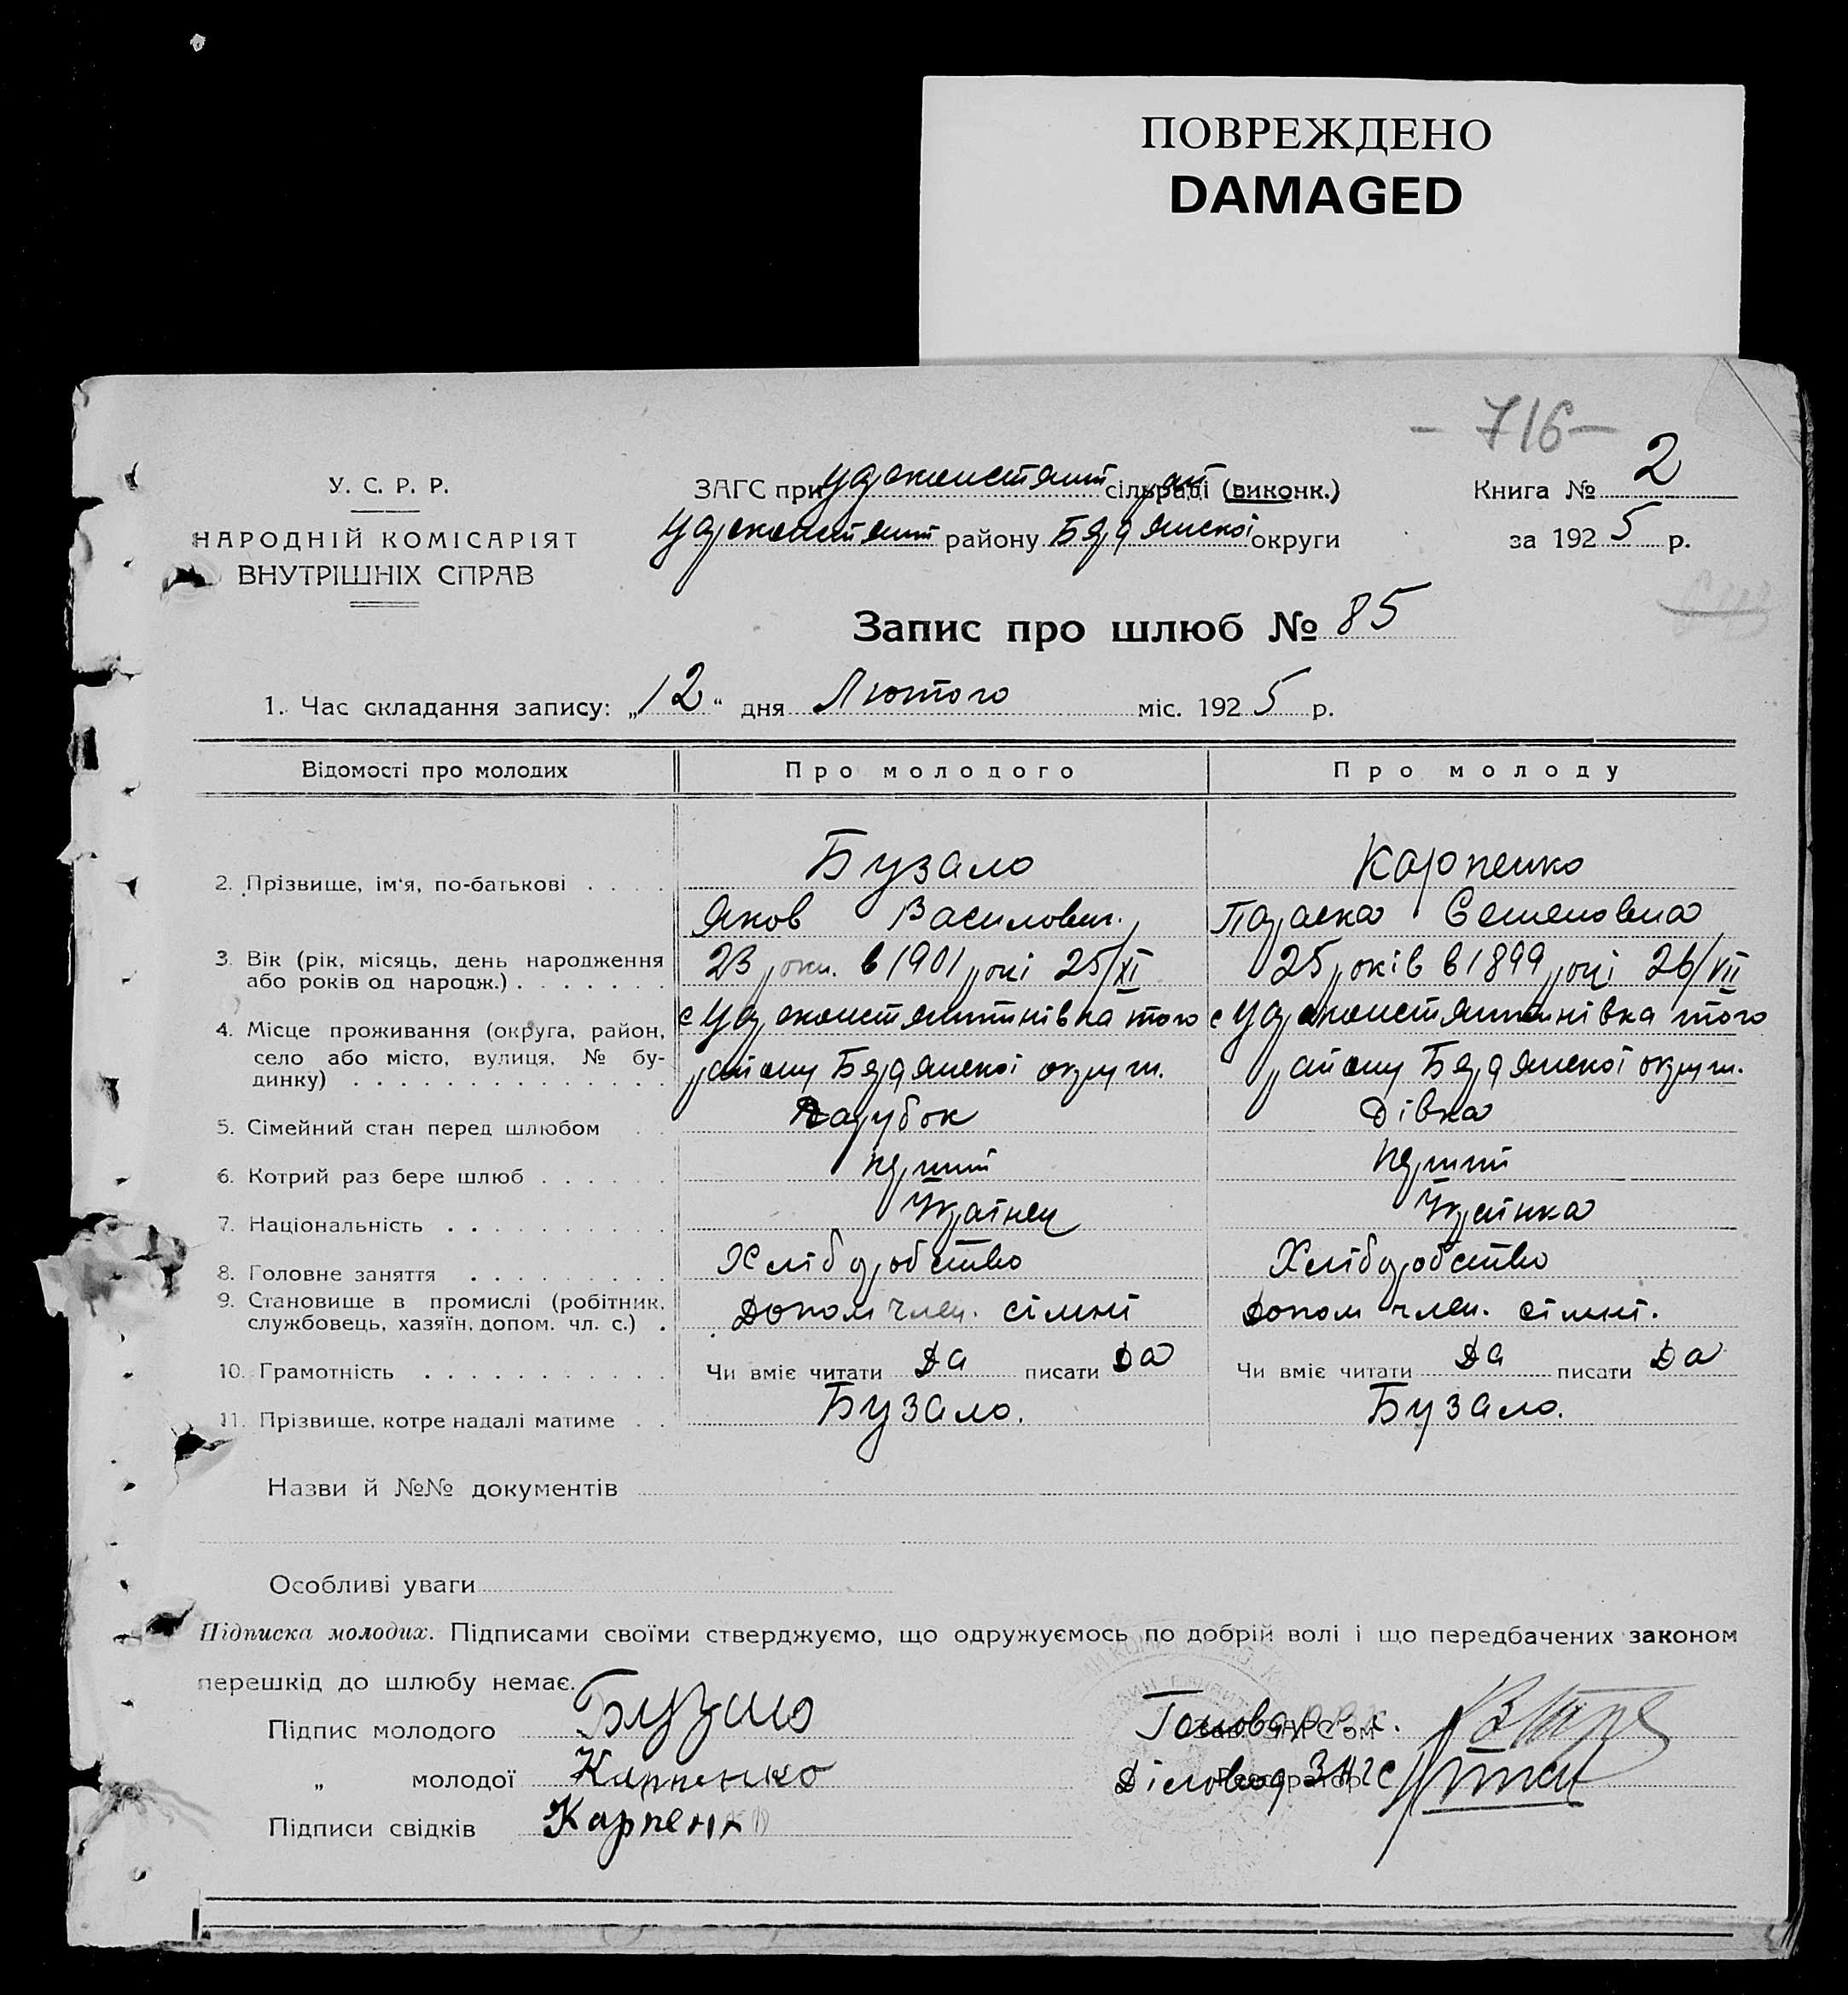 ПОВРЕЖДЕНО
DAMAGED
- 716 -
У. С. Р. Р.
НАРОДНІЙ КОМІСАРІЯТ
ВНУТРІШНІХ СПРАВ
ЗАГС при Цареконстант рай сільраді (виконк.)
Цареконстант району Бердянскої округи
Книга № 2
за 1925 р.
Запис про шлюб № 85
1. Час складання запису: „12“ дня Лютого міс. 1925 р.
Відомості про молодих Про молодого Про молоду
2. Прізвище, ім'я, по-батькові . . . . Бузало Карпенко
Яков Василович. Параска Семеновна
3. Вік (рік, місяць, день народження або років од народж.) . . . . . . . 23 роки. в 1901 році 25/XI 25 років в 1899 році 26/VII
4. Місце проживання (округа, район, село або місто, вулиця, № будинку) . . . . . . . . . . . . . . с Цареконстянтинівка того с Цареконстянтинівка того
району Бердянскої округи. району Бердянскої округи.
5. Сімейний стан перед шлюбом . . Парубок Дівка
6. Котрий раз бере шлюб . . . . . . перший перший
7. Національність . . . . . . . . . Українец Українка
8. Головне заняття . . . . . . . . . Хліборобство Хліборобство
9. Становище в промислі (робітник, службовець, хазяїн, допом. чл. с.) . Допом член. сімні Допом член. сімні.
10. Грамотність . . . . . . . . . . . Чи вміє читати Да писати Да Чи вміє читати Да писати Да
11. Прізвище, котре надалі матиме . . Бузало. Бузало.
Назви й №№ документів
Особливі уваги
Підписка молодих. Підписами своїми стверджуємо, що одружуємось по добрій волі і що передбачених законом
перешкід до шлюбу немає.
Підпис молодого Бузало Голова
„ молодої Карпенко Діловод ЗАГС
Підписи свідків Карпенко